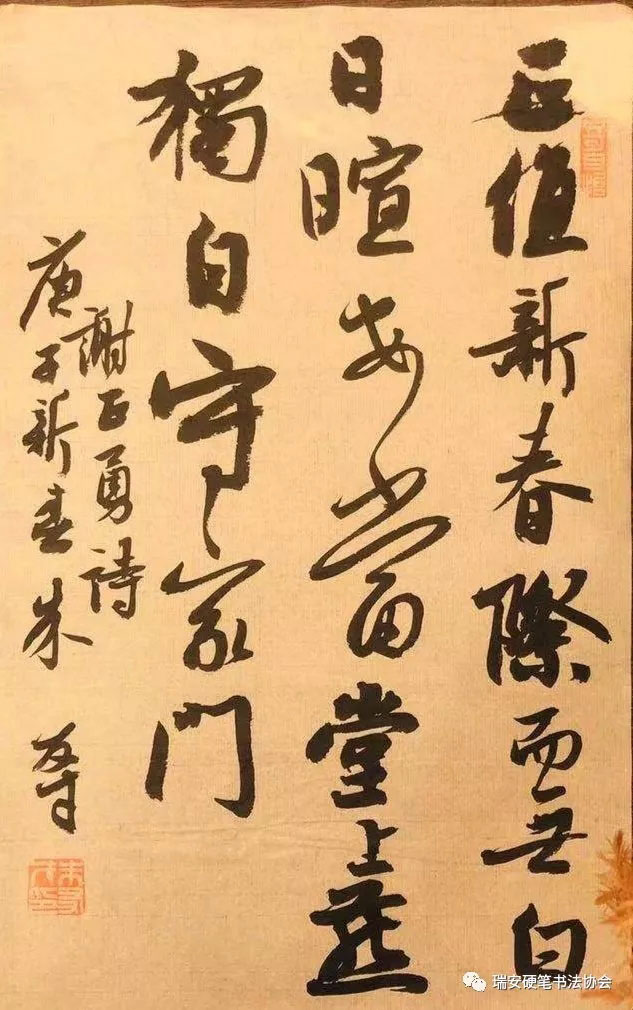 正值新春際而無白
日暄安當堂上燕
獨自守家門
謝正勇詩
庚子新春朱
瑞安硬笔书法协会